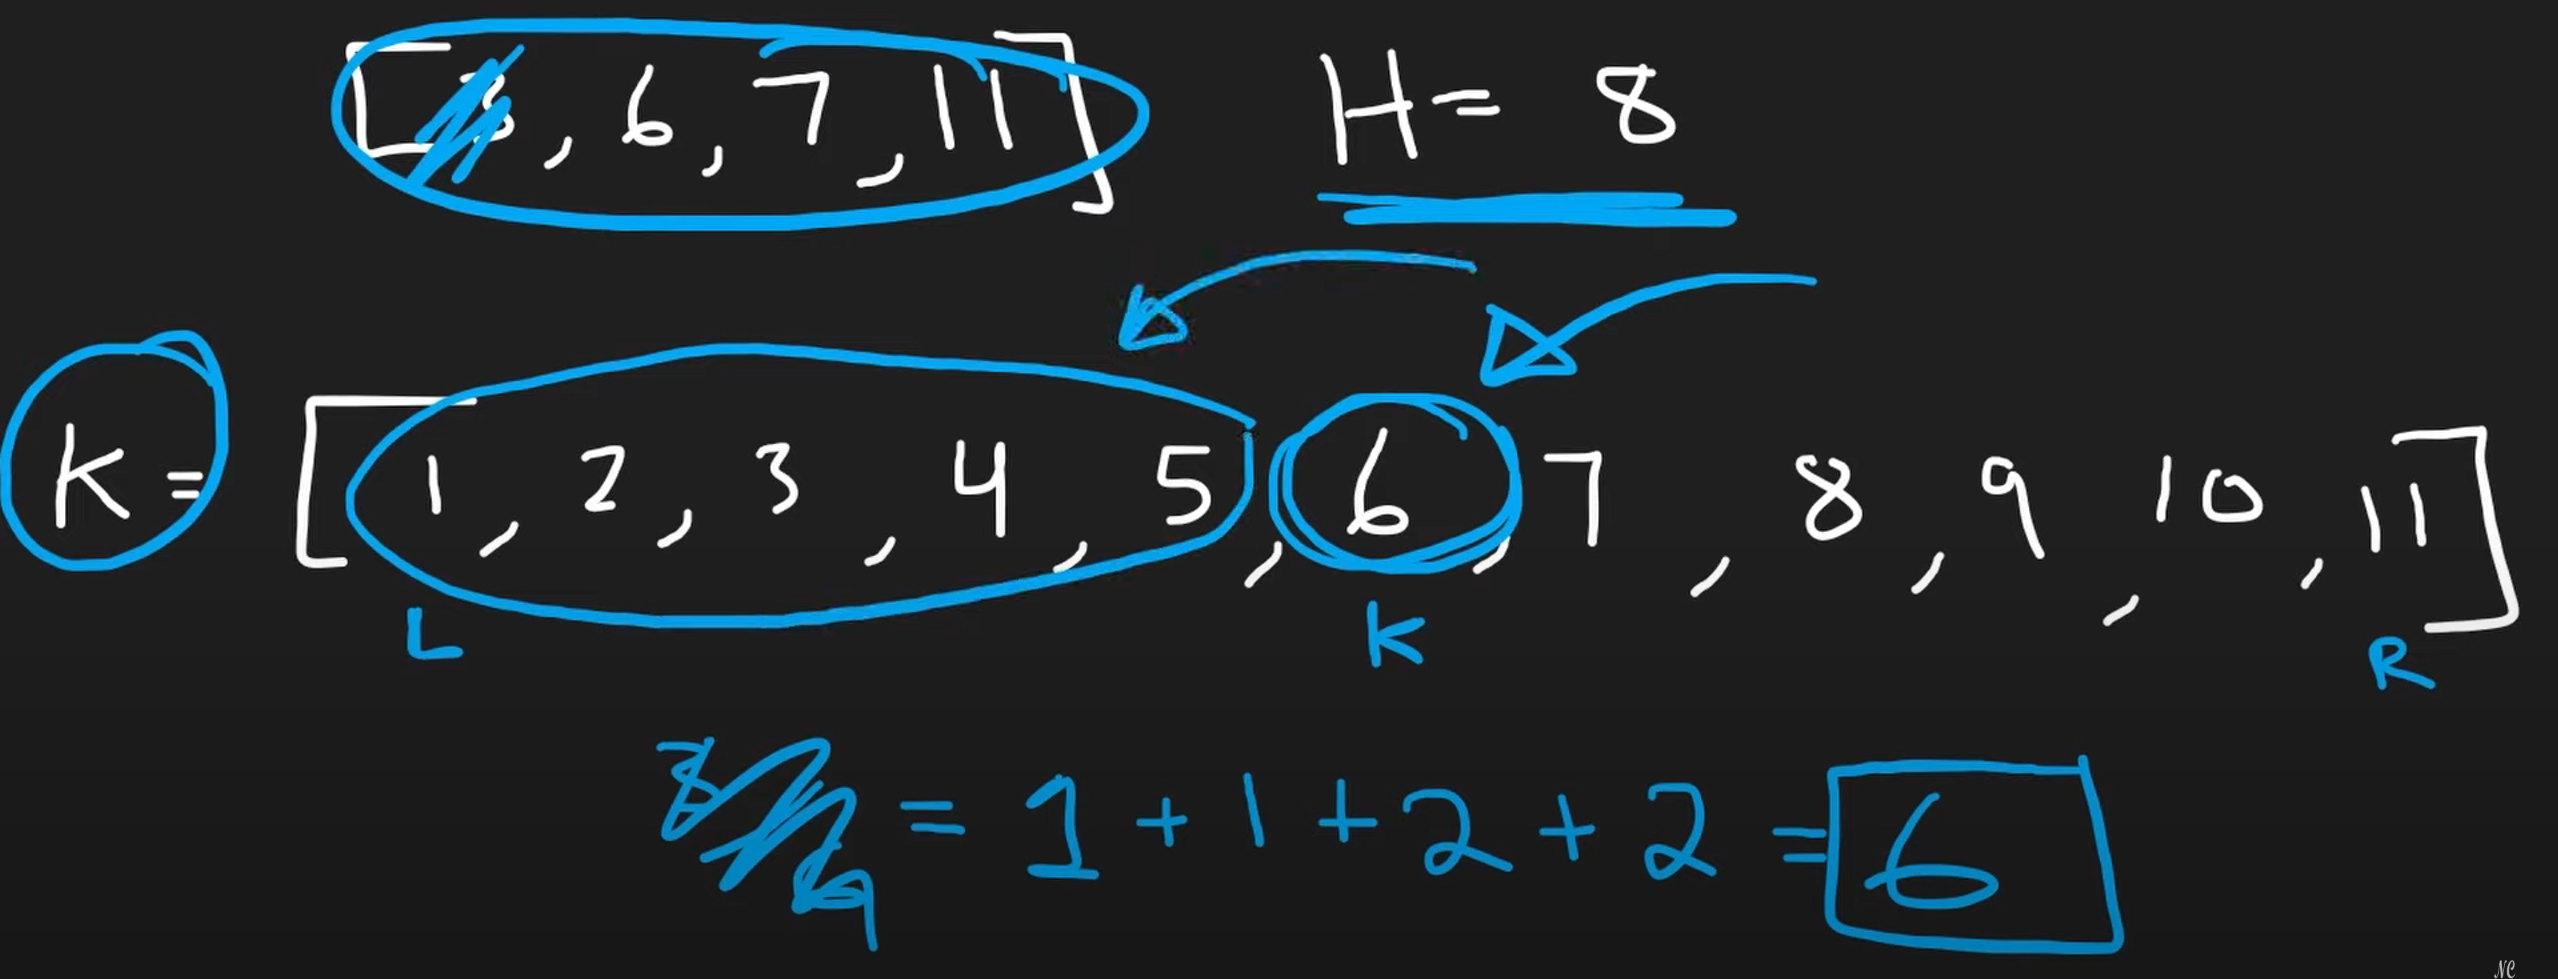 [3, 6, 7, 11] H = 8
K = [1, 2, 3, 4, 5, 6, 7, 8, 9, 10, 11]
L K R
= 1 + 1 + 2 + 2 = 6
NC